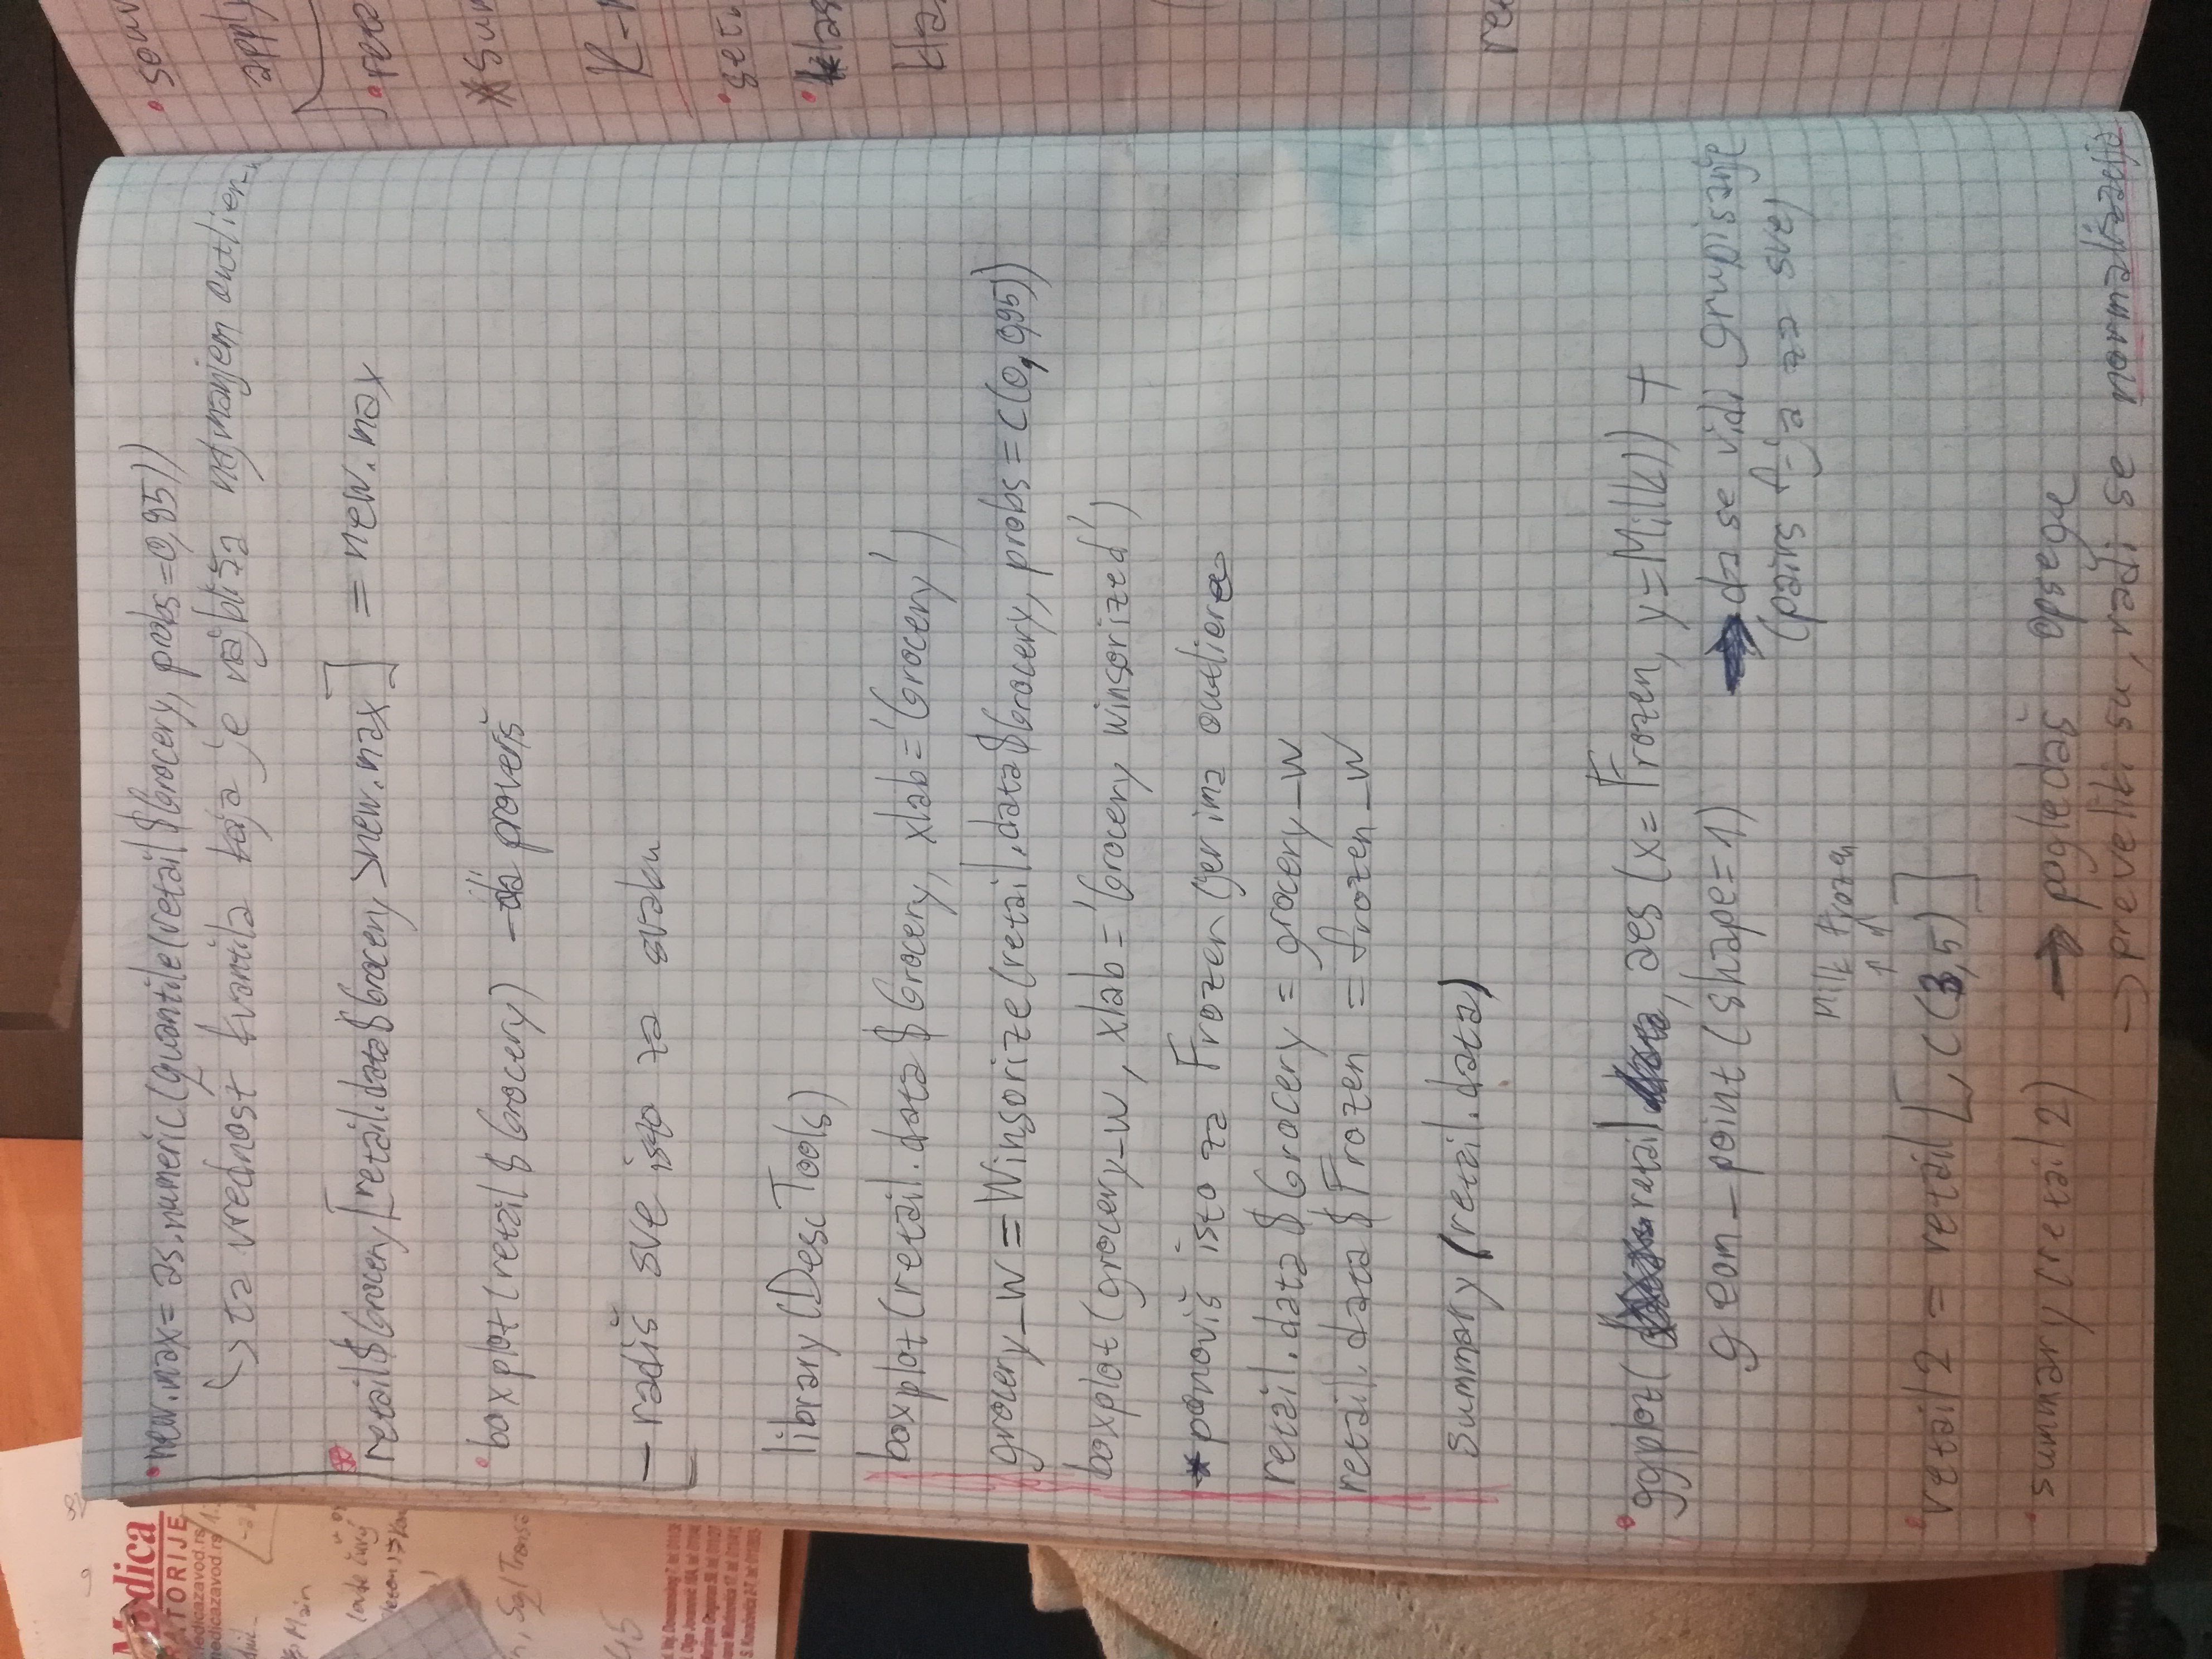 new.max = as.numeric(quantile(retail$Grocery, probs=0,95))
↳ ta vrednost kvantila koja je najbliža najmanjem outlier-u
retail$Grocery[retail.data$Grocery >new.max] = new.max
boxplot(retail$Grocery) - da proveriš
- radiš sve isto za svaku
library(DescTools)
boxplot(retail.data$Grocery, xlab='Grocery')
grocery_w = Winsorize(retail.data$Grocery, probs=c(0,0,95))
boxplot(grocery_w, xlab='Grocery winsorized')
* ponoviš isto za Frozen (jer ima outliere)
retail.data$Grocery = grocery_w
retail.data$Frozen = frozen_w
summary(retail.data)
ggplot( retail, aes (x=Frozen, y=Milk)) +
geom_point (shape=1) → da se vidi grupisanje
(pairs f-ja za sve)
Milk Frozen
↑ ↑
retail2 = retail[,c(3,5)]
summary(retail2) → pogledaš opsege
→ preveliki su, radi se normalizacija
Medica
RATORIJE
medicazavod.rs
medicazavod.rs
Main
Sql Trans
45
apply
K-